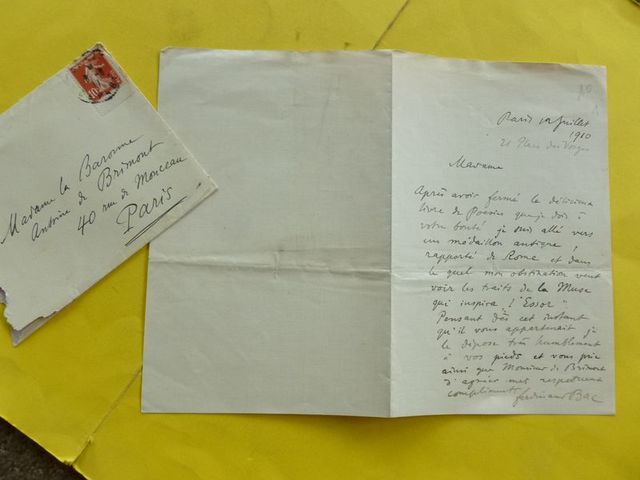 10
Madame la Baronne
Antoine de Brimont
40 rue de Monceau
Paris
Paris 12 Juillet
1910
21 Place des Vosges
Madame
Après avoir fermé le délicieux
livre de Poésies que je dois à
votre bonté je suis allé vers
un médaillon antique,
rapporté de Rome et dans
le quel mon obstination veut
voir les traits de la Muse
qui inspira l'"Essor".
Pensant dès cet instant
qu'il vous appartenait je
le dépose très humblement
à vos pieds et vous prie
ainsi que Monsieur de Brimont
d'agréer mes respectueux
compliments Ferdinand Bac